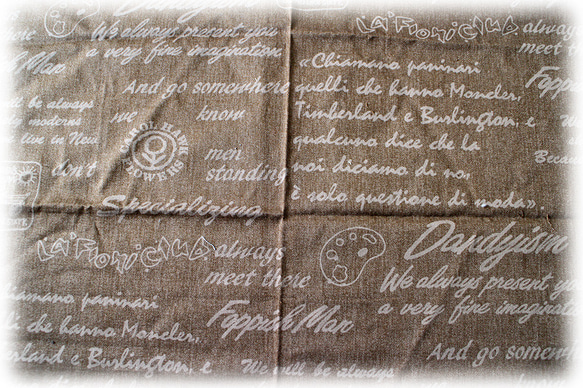 Dandyism
We always present you
a very fine imagination
Man
And go somewhere
we know
be always
moderns
live in New
don't
men
standing
FLOWERS
Specializing
always
meet
«Chiamano paninari
quelli che hanno Moncler,
Timberland e Burlington; e
qualcuno dice che la
noi diciamo di no,
è solo questione di moda».
always
meet there
Dandyism
We always present you
a very fine
Foppish Man
And go somewhere
paninari
che hanno Moncler,
e Burlington; e
We will be always